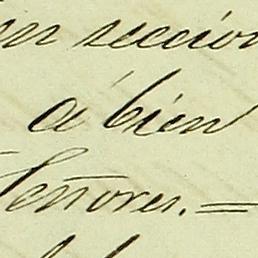 en seccion
á bien
Señores.=